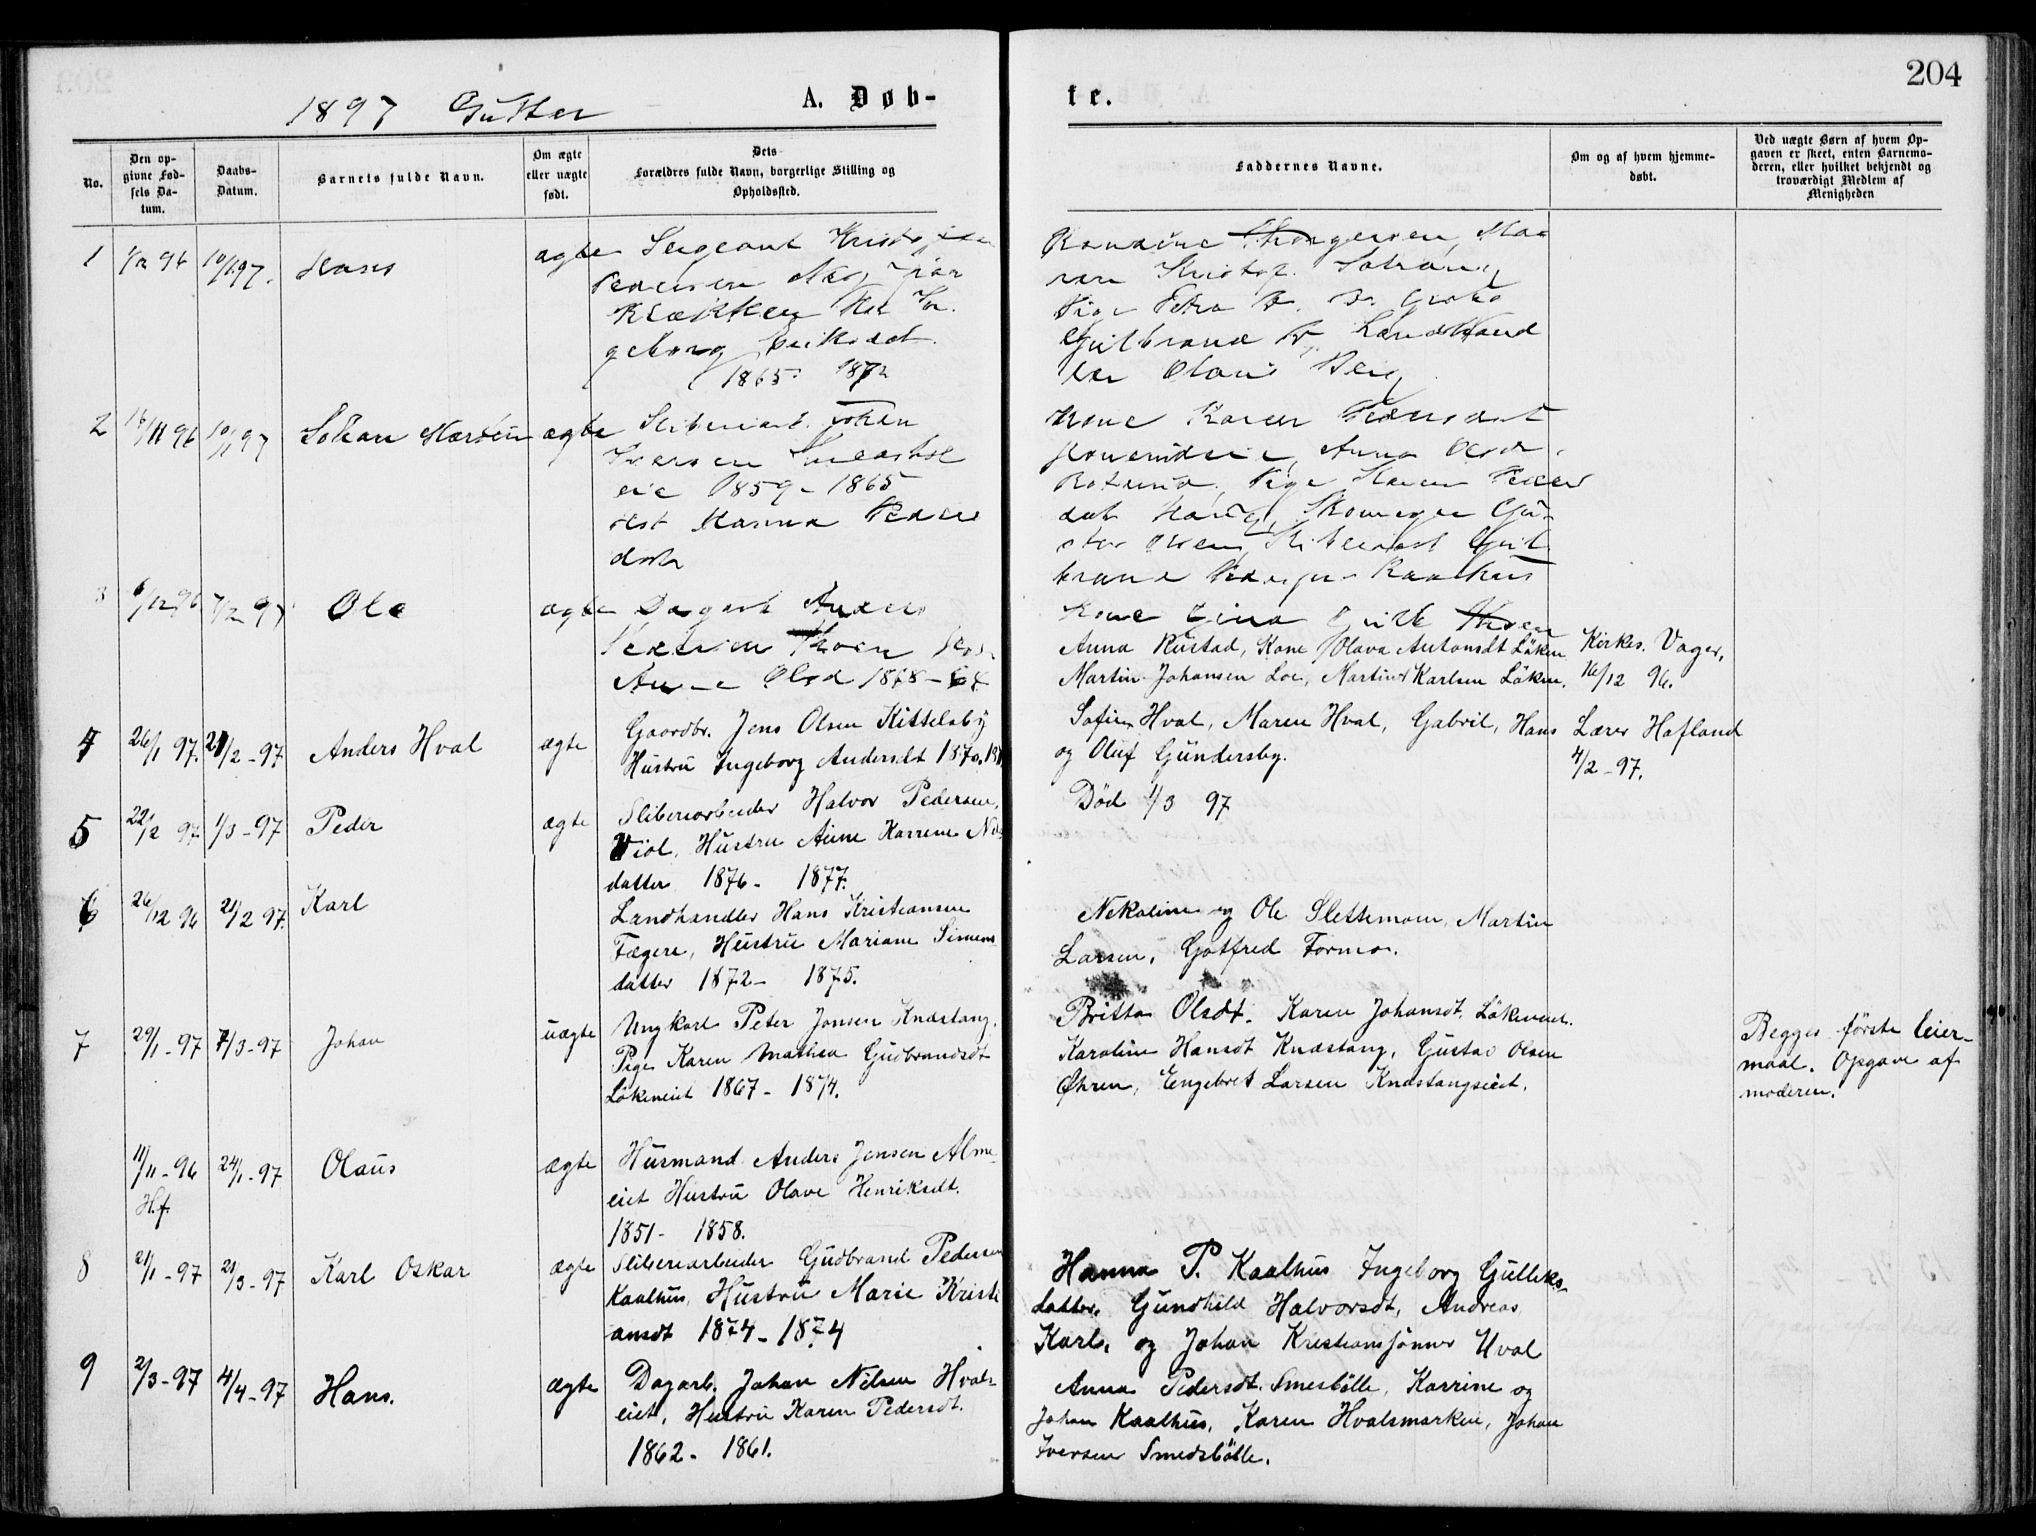 204
1897 Gutter
A. Døb-
te.
No.
Den op-
givne Fød-
sels Da-
tum.
Daabs-
Datum.
Barnets fulde Navn.
Om ægte
eller uægte
født.
Dets
Forældres fulde Navn, borgerlige Stilling og
Opholdssted.
Faddernes Navne.
Om og af hvem hjemme-
døbt.
Ved uægte Børn af hvem Op-
gaven er skeet, enten Barnemo-
deren, eller hvilket bekjendt og
troværdigt Medlem af
Menigheden
1 10/1 97. Hans ægte Sergeant
Klækken
1865 1872
Gulbrand Landhand
ler Olaus Berg
2 10/1 97 Johan ægte Johan
Iversen
eie 1859 - 1865
Hanna Peder
datr
Kone Karen Pedersdat
Anna Olsd.
Pige Karen Peder
dat Skomager Gu-
stav Olsen, Gul
brand Kaalhus
3 6/12 96 7/2 97 Ole ægte Dagarb Anders
Pedersen Moen
Olsd 1878 - 64
Kone Gina
Anna Rustad, Kone Olava Antonsdt Löken
Martin Johansen Loe, Martin Karlsen Löken.
Kirkes. Vager,
16/12 96.
4 26/1 97. 21/2 - 97 Anders Hval ægte Gaardbr. Jens Olsen Kittelsby
Hustru Ingeborg Andersdt 1870.
Sofie Hval, Maren Hval, Gabril, Hans
og Oluf Gundersby.
Lærer Hafland
4/2 - 97.
5 22/2 97. 1/3 - 97 Peder ægte Sliberiarbeider Halvor Pedersen,
Viol, Hustru Anne Karrene Nils
datter 1876 - 1877.
Död 1/3 97
6 26/12 96 21/2 97. Karl
Landhandler Hans Kristiansen
Fægere, Hustru Mariane Simens
datter 1872 - 1875.
Nekoline og Ole Slettemoen, Martin
Larsen, Gotfred Formo.
7 29/1 - 97 7/3 - 97 Johan uægte Ungkarl Peter Jonsen Knæstang,
Pige Karen Mathea Gudbrandsdt
Lökeneiet 1867 - 1874.
Britta Olsdt. Karen Johansdt. Lökeneiet.
Karoline Hansdt Knæstang, Gustav Olsen
Öhren, Engebret Larsen Knæstangseiet.
Begges förste leier-
maal. Opgave af
moderen.
11/11 - 96 24/1 - 97 Olaus ægte Husmand Anders Jensen Alm-
H.f. eiet Hustru Olave Henriksdt.
1851 - 1858.
8 21/1 - 97 21/3 - 97 Karl Oskar ægte Sliberiarbeider Gudbrand Pedersen
Kaalhus, Hustru Marie Kristi
ansdt 1874 - 1874
Hanna P. Kaalhus Ingeborg Gulliks-
datter, Gunhild Halvorsdt, Andreas
Karl, og Johan Kristiansjönner Hval
9 2/3 - 97 4/4 - 97 Hans. ægte Dagarb. Johan Nilsen Hvals-
eiet, Hustru Karen Pedersdt.
1862 - 1861.
Anna Pedersdt. Smesbölle, Karrine og
Johan Kaalhus, Karen Hvalsmarken, Johan
Iversen Smedsbölle.